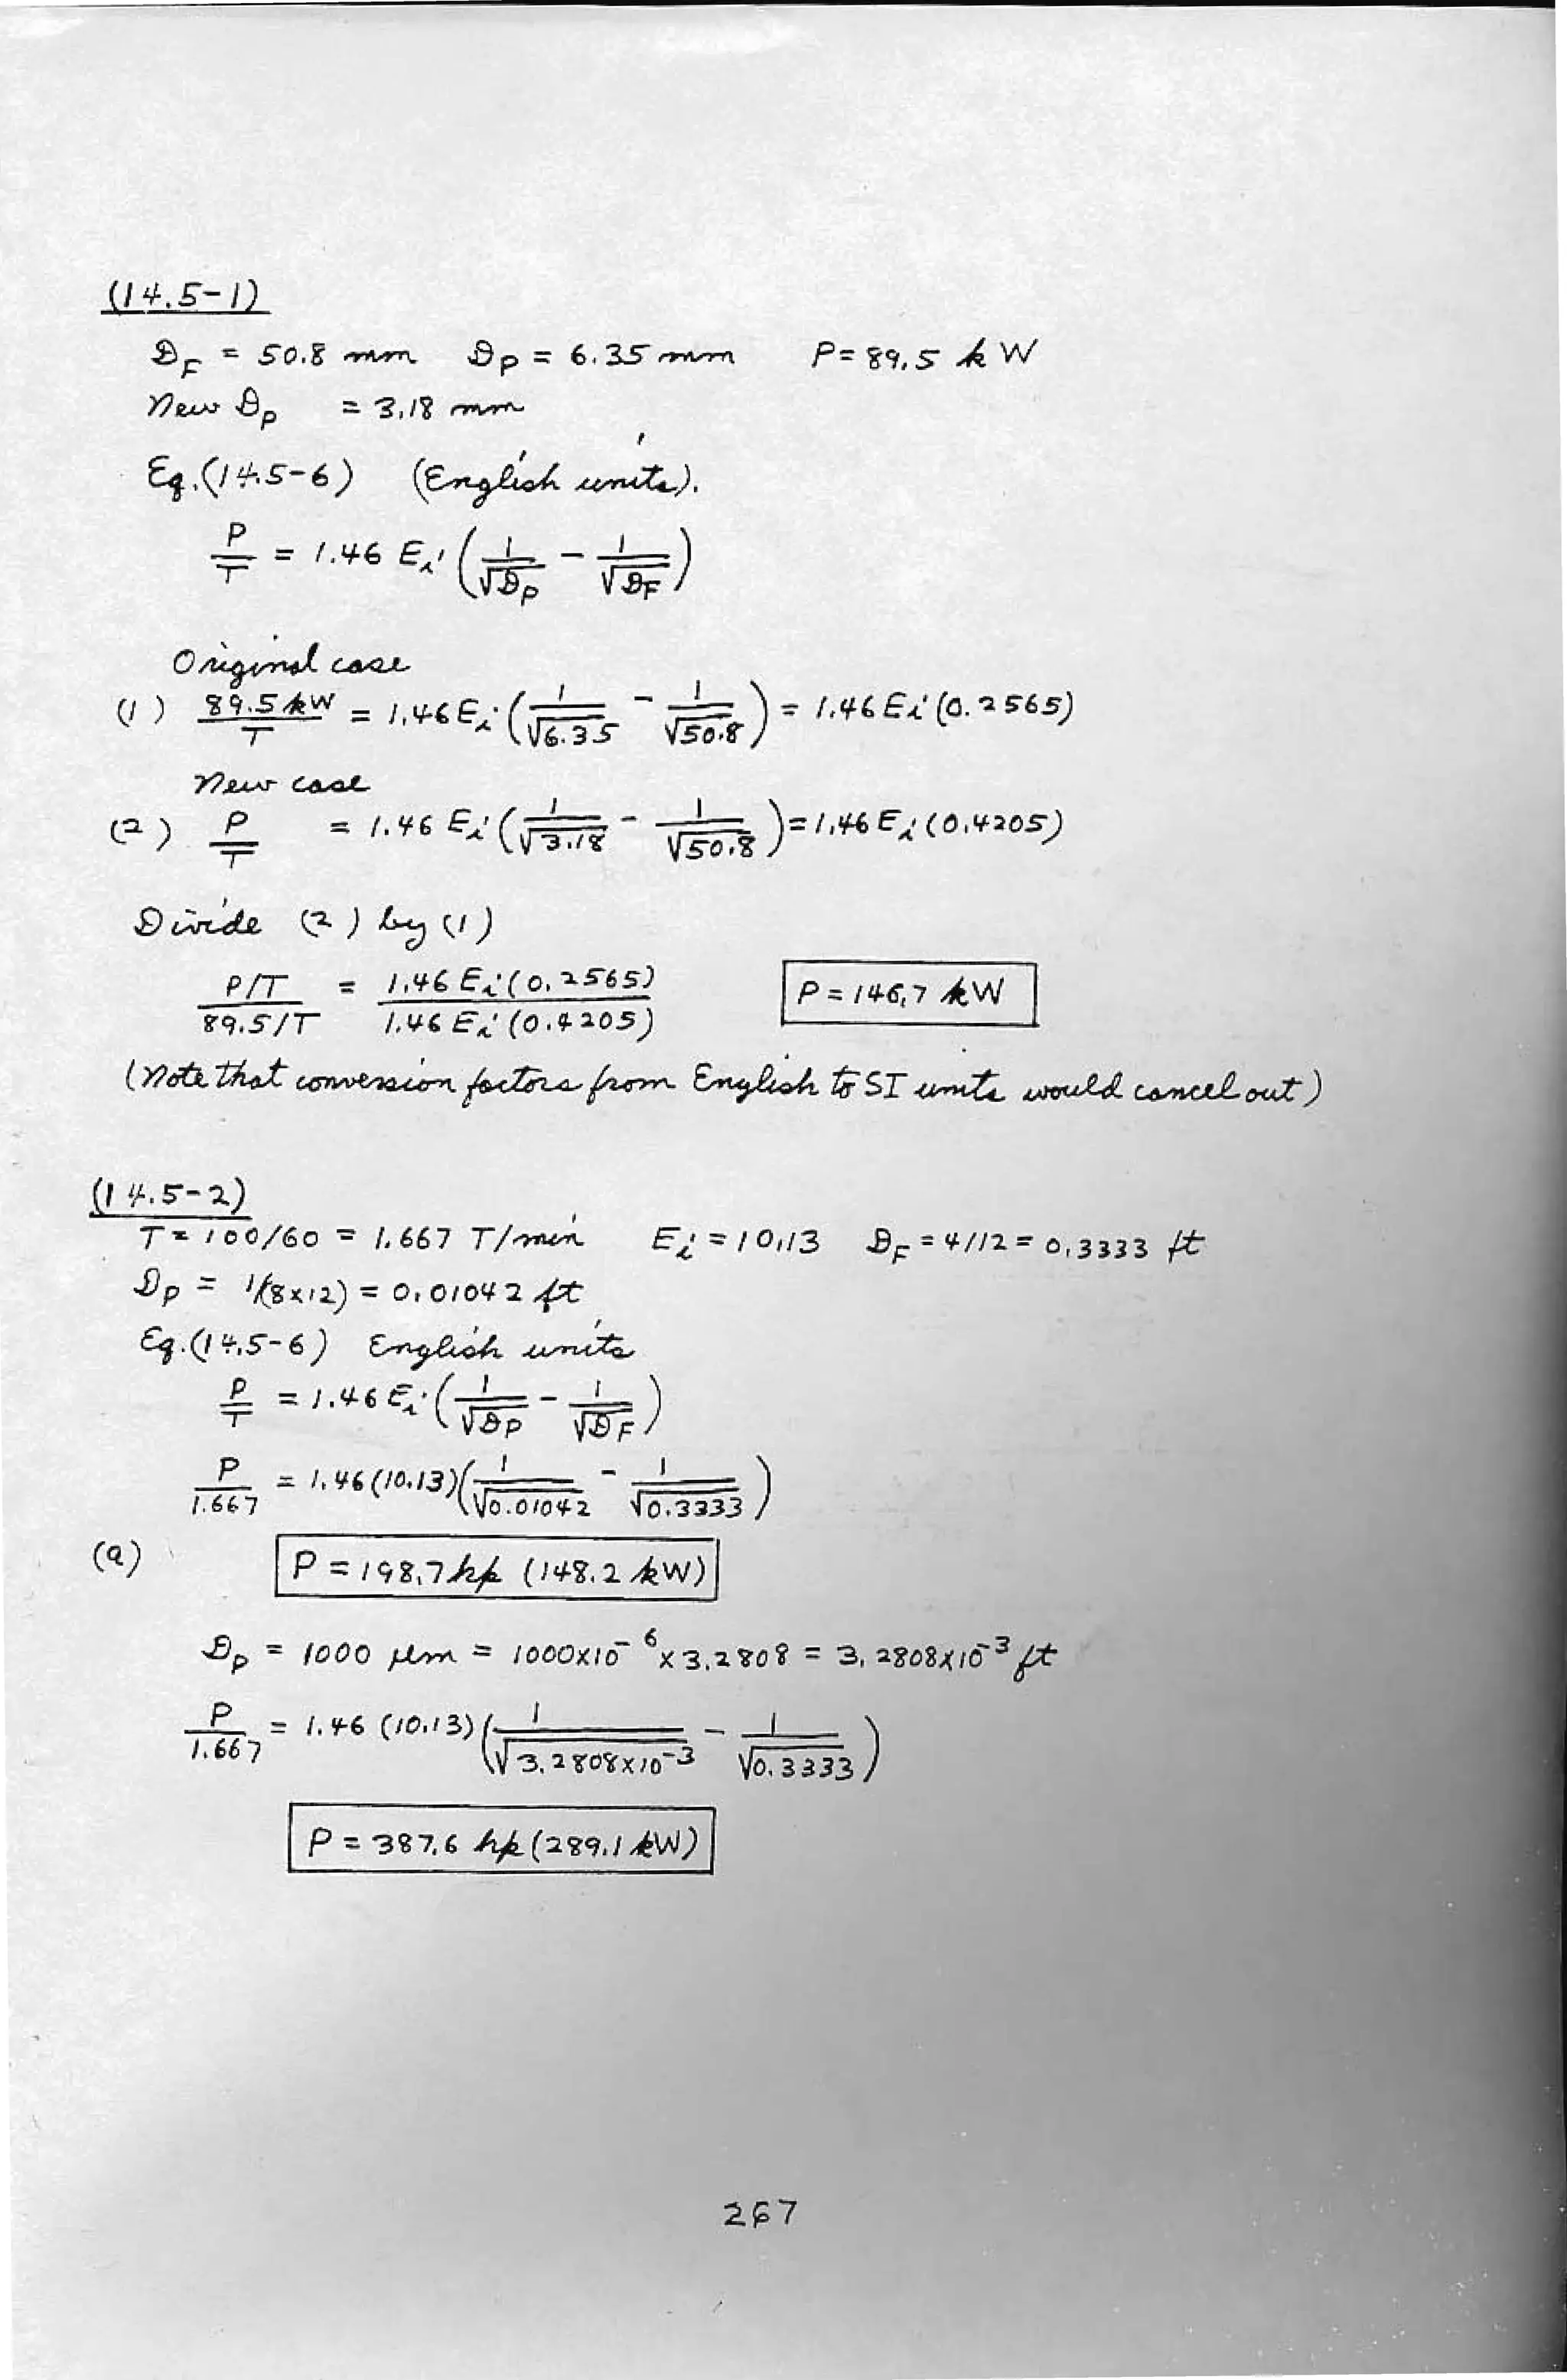 (14.5-1)
D_F = 50.8 mm D_P = 6.35 mm P = 89.5 kW
New D_P = 3.18 mm
Eq. (14.5-6) (English units).
P/T = 1.46 E_i (1/√D_P - 1/√D_F)
Original case
(1) 89.5 kW/T = 1.46 E_i (1/√6.35 - 1/√50.8) = 1.46 E_i (0.2565)
New case
(2) P/T = 1.46 E_i (1/√3.18 - 1/√50.8) = 1.46 E_i (0.4205)
Divide (2) by (1)
(P/T)/(89.5/T) = 1.46 E_i (0.2565)/1.46 E_i (0.4205) P = 146.7 kW
(Note that conversion factors from English to SI units would cancel out)
(14.5-2)
T = 100/60 = 1.667 T/min E_i = 10.13 D_F = 4/12 = 0.3333 ft
D_P = 1/(8×12) = 0.01042 ft
Eq. (14.5-6) English units
P/T = 1.46 E_i (1/√D_P - 1/√D_F)
P/1.667 = 1.46 (10.13)(1/√0.01042 - 1/√0.3333)
(a) P = 198.7 hp (148.2 kW)
D_P = 1000 μm = 1000×10^-6 × 3.2808 = 3.2808×10^-3 ft
P/1.667 = 1.46 (10.13)(1/√3.2808×10^-3 - 1/√0.3333)
P = 387.6 hp (289.1 kW)
267